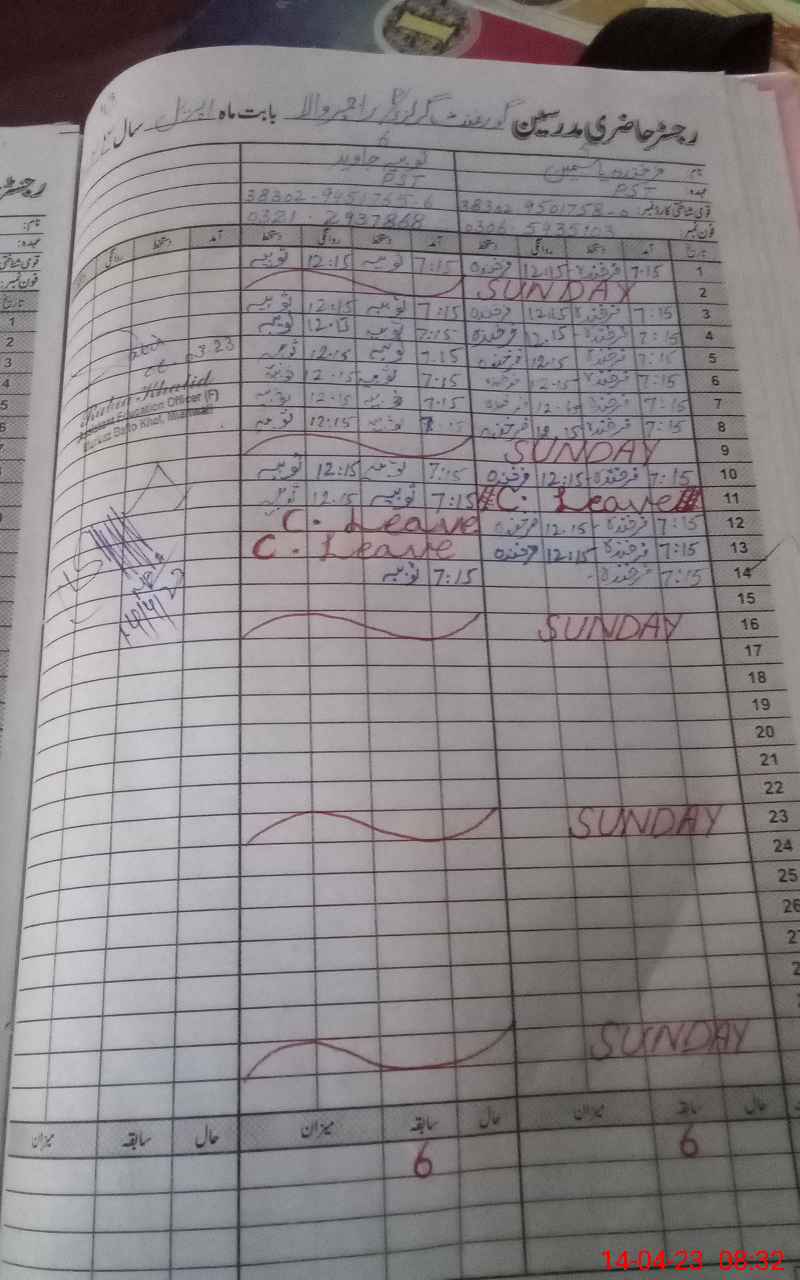 رجسٹر حاضری مدرسین گورنمنٹ گرلز راجر والا بابت ماہ اپریل سال
نام: فرخندہ یاسمین ثوبیہ جاوید
عہدہ: PST PST
قومی شناختی کارڈ نمبر: 38302-9501758-0 38302-9451765-6
فون نمبر: 0321-2937868
تاریخ آمد دستخط روانگی دستخط آمد دستخط روانگی دستخط آمد دستخط روانگی
1 7:15 فرخندہ 12:15 فرخندہ 7:15 ثوبیہ 12:15 ثوبیہ
2 SUNDAY
3 7:15 فرخندہ 12:15 فرخندہ 7:15 ثوبیہ 12:15 ثوبیہ
4 7:15 فرخندہ 12:15 فرخندہ 7:15 ثوبیہ 12:15 ثوبیہ
5 7:15 فرخندہ 12:15 فرخندہ 7:15 ثوبیہ 12:15 ثوبیہ
6 7:15 فرخندہ 12:15 فرخندہ 7:15 ثوبیہ 12:15 ثوبیہ
7 7:15 فرخندہ 12:15 فرخندہ 7:15 ثوبیہ 12:15 ثوبیہ
8 7:15 فرخندہ 12:15 فرخندہ 7:15 ثوبیہ 12:15 ثوبیہ
9 SUNDAY
10 7:15 فرخندہ 12:15 فرخندہ 7:15 ثوبیہ 12:15 ثوبیہ
11 C. Leave 7:15 ثوبیہ 12:15 ثوبیہ
12 7:15 فرخندہ 12:15 فرخندہ C. Leave
13 7:15 فرخندہ 12:15 فرخندہ C. Leave
14 7:15 فرخندہ 7:15 ثوبیہ
15
16 SUNDAY
17
18
19
20
21
22
23 SUNDAY
24
25
26
SUNDAY
حال سابقہ میزان حال سابقہ میزان حال سابقہ میزان
6 6
Khalid
Assistant Education Officer (F)
14/4/23
رجسٹر
نام:
عہدہ:
قومی شناختی
فون نمبر:
تاریخ
1
2
3
4
5
6
7
8
14-04-23 08:32